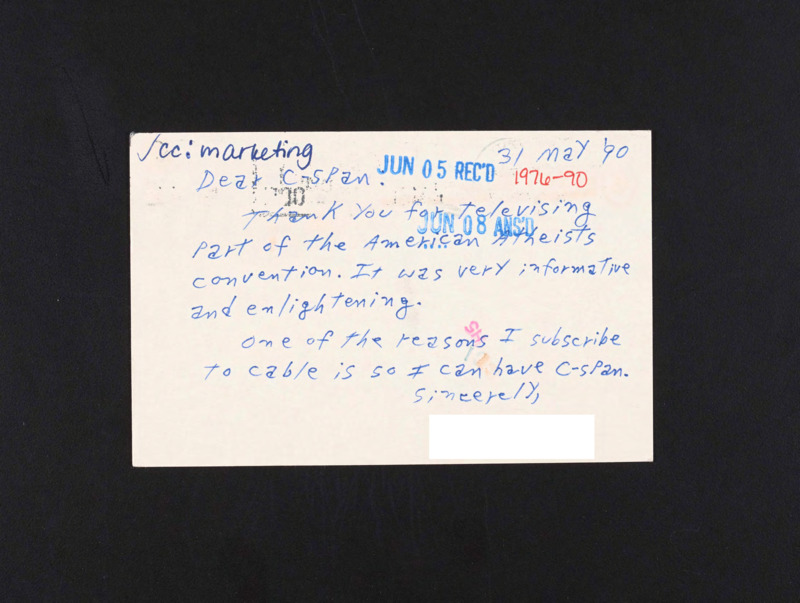 √cc: marketing
31 May '90
JUN 05 REC'D
1976-90
Dear C-SPan.
Thank You for televising
JUN 08 ANS'D
Part of the American Atheists
convention. It was very informative
and enlightening.
One of the reasons I subscribe
to cable is so I can have C-SPan.
Sincerely,